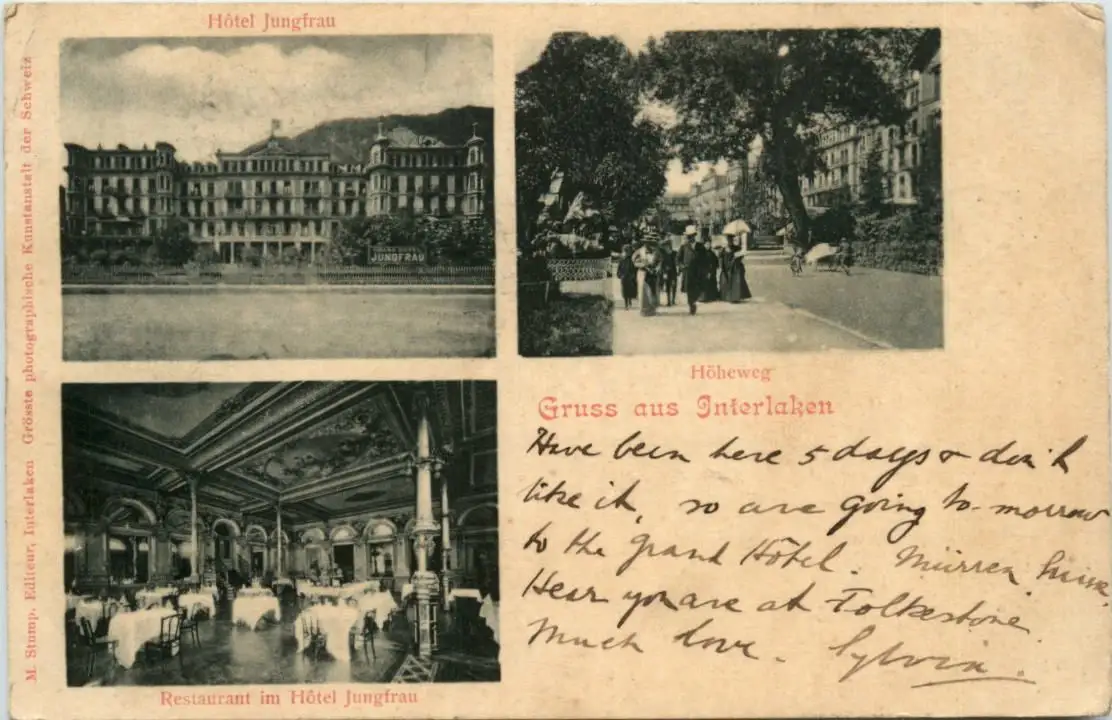 Hôtel Jungfrau
M. Stump. Editeur, Interlaken Grösste photographische Kunstanstalt der Schweiz
JUNGFRAU
Höheweg
Gruss aus Interlaken
Have been here 5 days & don't
like it, so are going to-morrow
to the Grand Hôtel. Mürren,
Hear you are at Folkestone.
Much love. Sylvia.
Restaurant im Hôtel Jungfrau